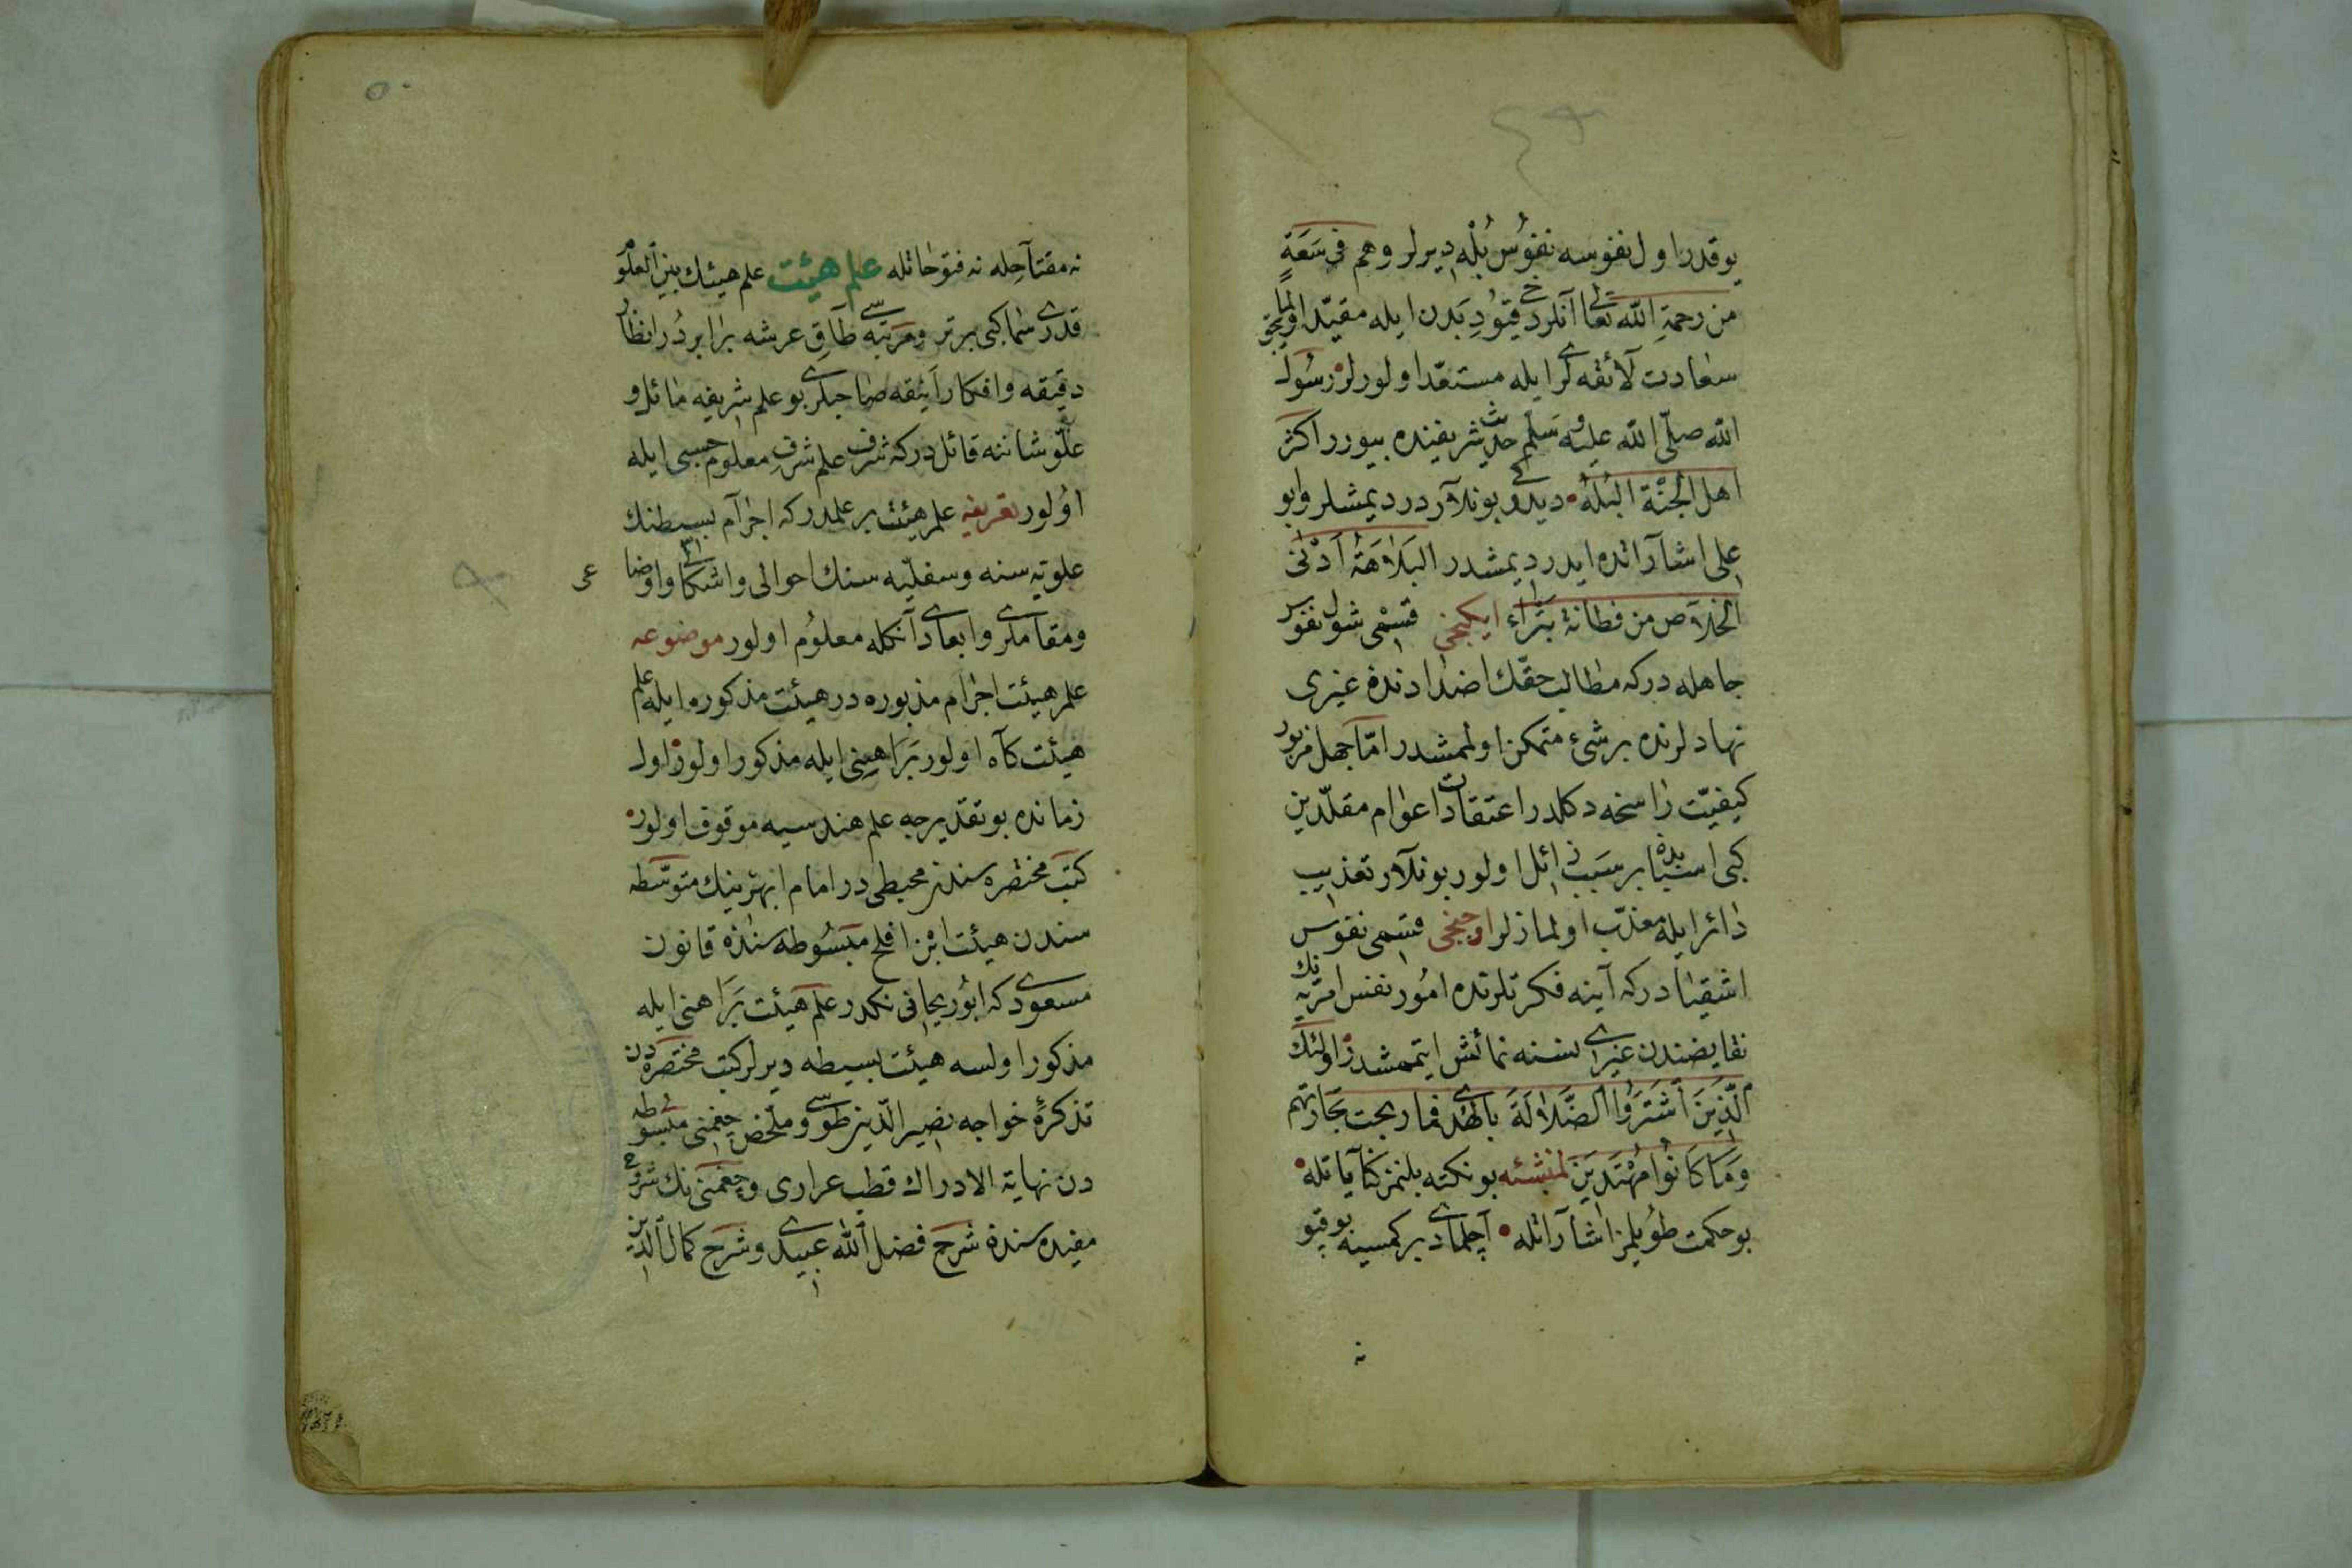 يوقدر اول نفوسه نفوُس بُلْه ديرلر وهم فى سَعَةٍ
من رحمة الله تعالى آنلر دخى قيوُدِ بَدن ايله مقيّد اولمايجق
سعادت لائقه لرى ايله مستعدّ اولورلر رسُول
الله صلّى الله عليه وسَلّم حديث شريفنده بيورر اكثر
اهل الجنّة البُلْهُ ديدوكى بونلآردر ديمشلر وابو
على اشآراتده ايدر ديمشدر البَلاهَةُ اَدْنٰى
الخلآص من فطانة بَتْراء ايكنجى قسْمى شول نفوس
جاهله دركه مطالب حقّك اضدادندن غيرى
نهادلرنده بر شئ متمكن اولممشدر امّا جهل مزبور
كيفيّت راسخه دكلدر اعتقادات اعوام مقلّدين
كبى استبابده بر سَبب زائل اولور بونلآر تعذيب
دائر ايله معذّب اولمازلر اوجنجى قسمى نفوس
اشقيادركه آينه فكرتلرنده امُور نفس امريّه نك
نقايضندن غيرى نسنه نمائش ايتممشدر اولئك
الّذينَ اشْتَرَوُا الضَّلالَةَ بالهُدى فما ربحت تجارتهم
وَمَا كانُوا مُهْتَدينَ لمنشئه بو نكته بلنمز كنآياتله
بو حكمت طوُيلمز اشآراتله آچلمادى بر كمسيه بو قپو
نه
نه مقتآحِله نه فتوحاتله علم هيئت علم هيئك بين العلوم
قدرى سما كبى برتر ومرتبه سى طآقِ عرشه برابردُر انظار
دقيقه وافكار اَنيقه صاحبلرى بو علم شريفه مائل و
علّو شاننه قائل دركه شرف علم شرفِ معلوم حسبى ايله
اوُلور تعريفى علم هيئت بر علمدركه اجرآم بسيطنك
علويّه سنه وسفليّه سنك احوالى واشكالى واوضا
عى
ومقاملرى وابعادى آنكله معلوُم اولور موضوعه
علم هيئت اجرام مذبوره در هيئت مذكوره ايله علم
هيئت كآه اولور بَرَاهينى ايله مذكور اولور اول
زمانده بو تقديرجه علم هندسيه موقوف اولور
كتب مختصره سندن محبطى در امام ابهرينك متوسّطه
سندن هيئت ابْن افلح مبْسُوطه سنده قانون
مسعودى كه ابوُريحانى نكدر علم هيئت بَرَاهنى ايله
مذكور اولسه هيئت بسيطه ديرلر كتب مختصره دن
تذكرهٔ خواجه نصير الدّين طوسى وملخّص چغمنى مبسوطه
دن نهاية الادراك قطب عرارى وچغمنى نك شروح
مفيده سنده شرح فضل الله عبيدى وشرح كمال الدين